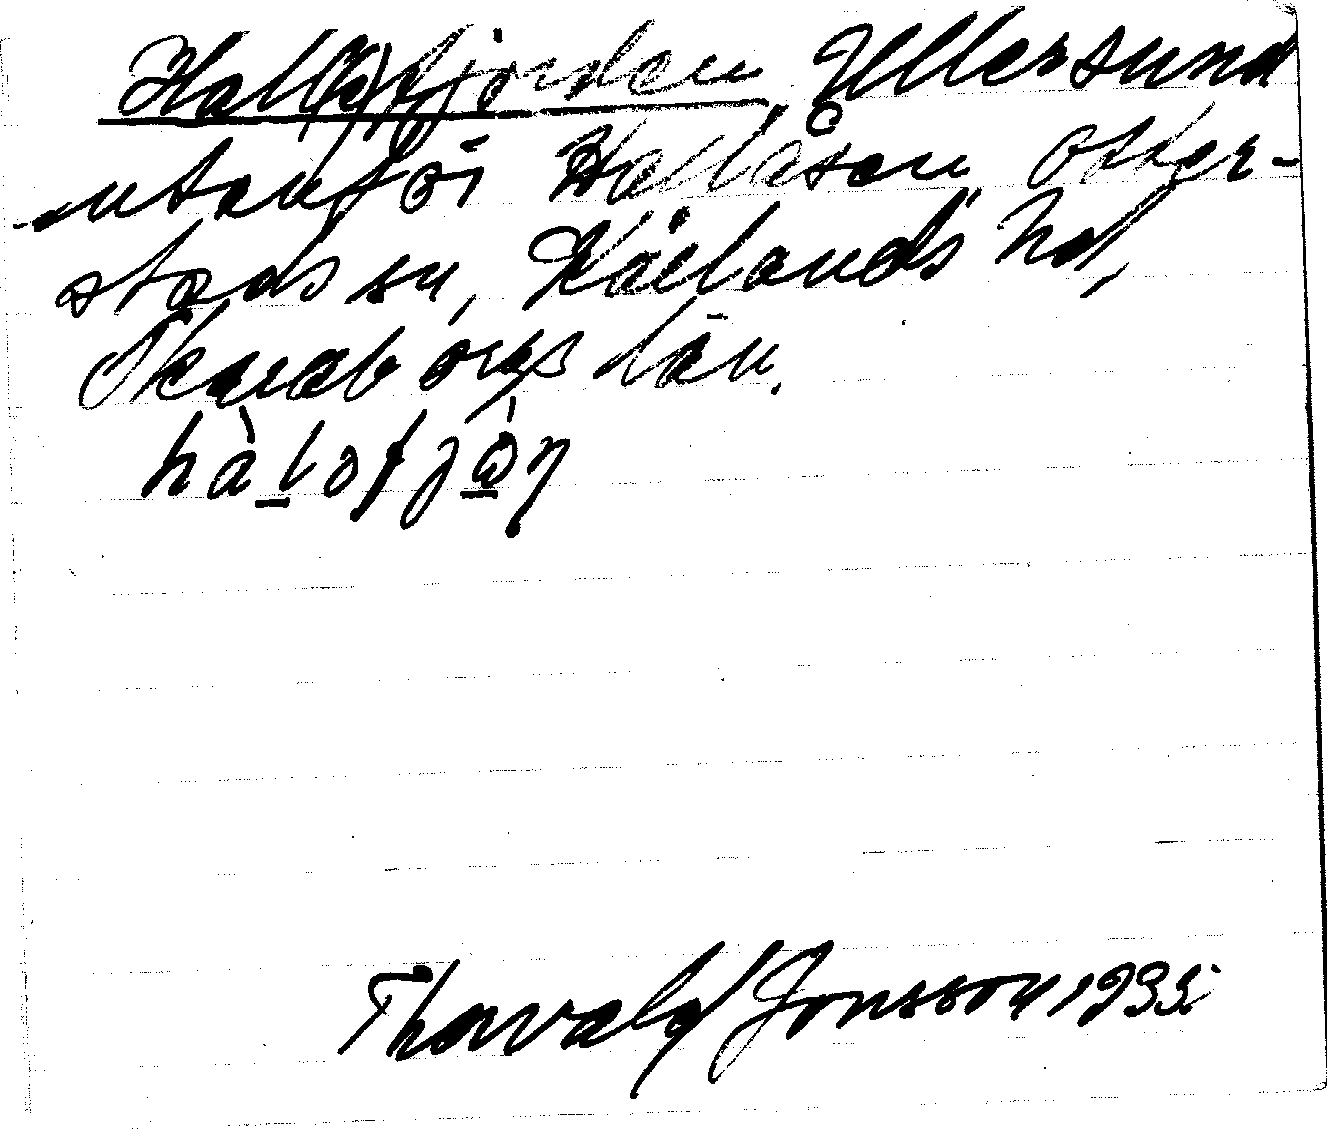 Hall(e)fjorden, Ullersund
utanför Hallåsen, Otter-
stads sn, Kållands hd,
Skaraborgs län.
hàl̲əfjò̲ŋ
Thorvald Jonsson 1933.